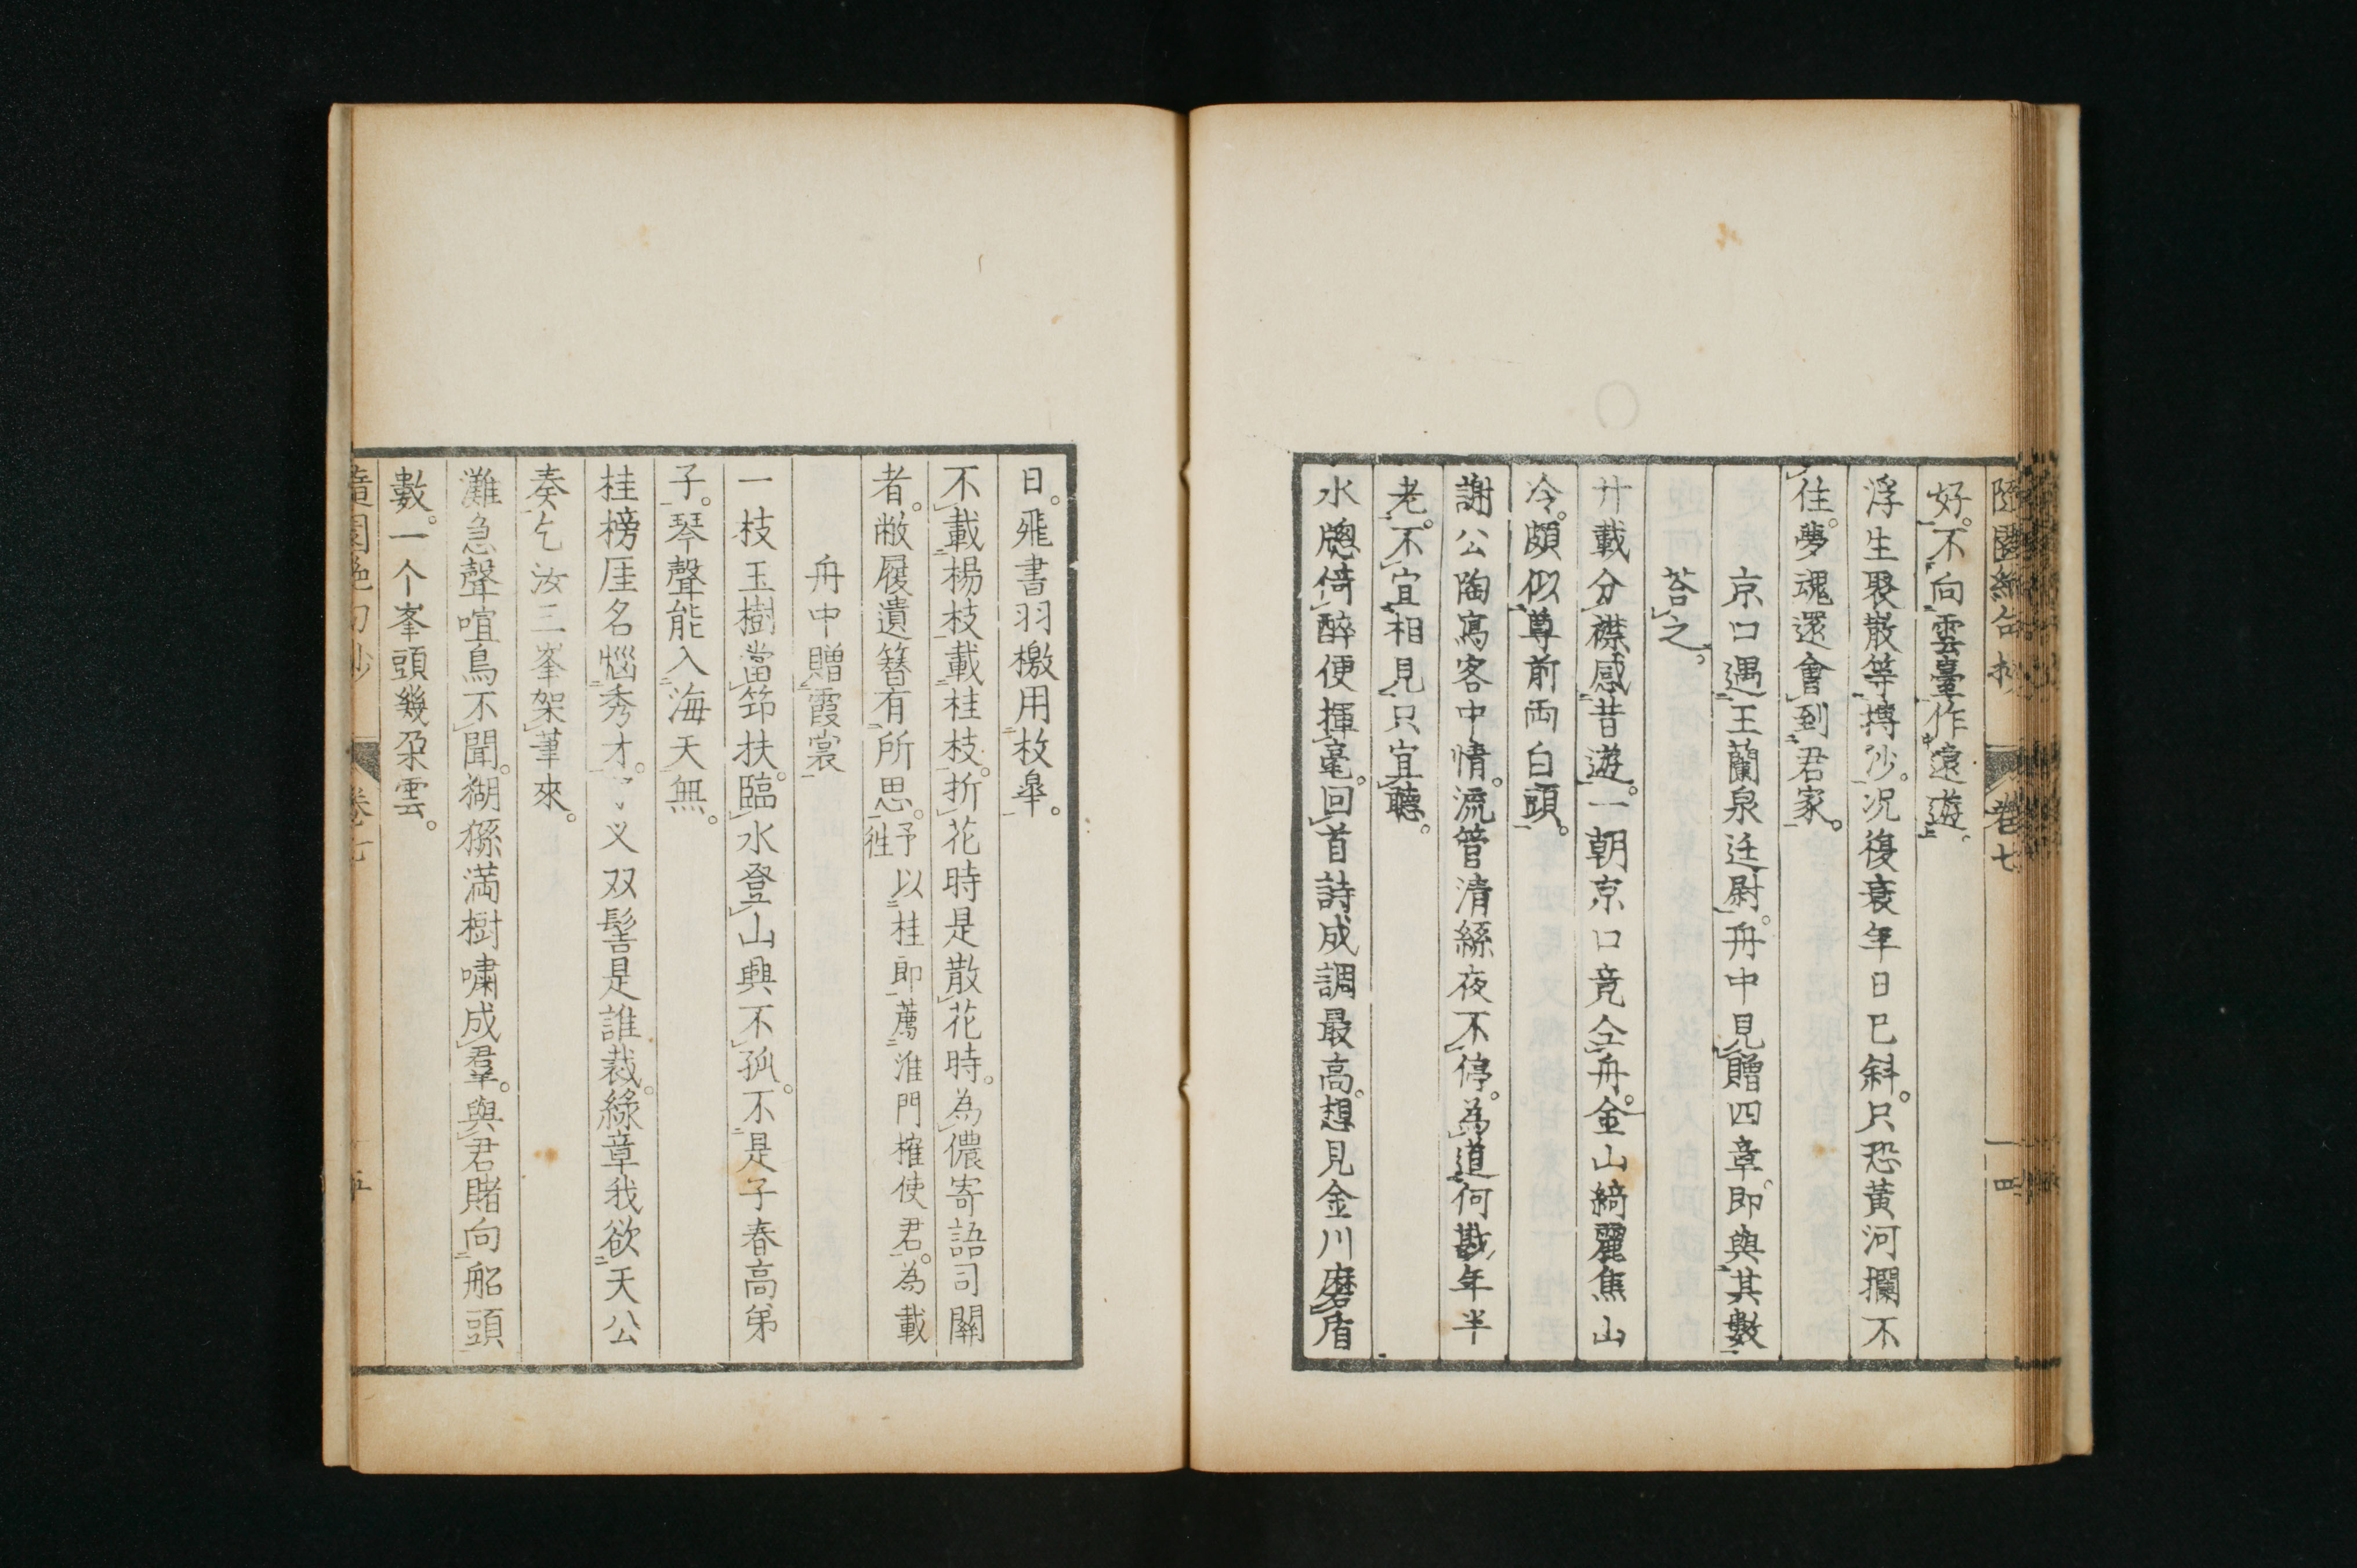 隨園絕句抄 卷七 四
好。不向雲臺作遠遊。
浮生聚散等摶沙。况復衰年日已斜。只恐黃河攔不
住。夢魂還會到君家。
京口遇王蘭泉廷尉。舟中見贈四章。即與其數
荅之。
廿載分襟感昔遊。一朝京口竟仝舟。金山綺麗焦山
冷。頗似尊前両白頭。
謝公陶寫客中情。流管清絲夜不停。為道何戡年半
老。不宜相見只宜聽。
水牕倚醉便揮毫。回首詩成調最高。想見金川磨盾
日。飛書羽檄用枚皐。
不載楊枝載桂枝。折花時是散花時。為儂寄語司關
者。敝履遺簪有所思。予以桂郎薦淮門榷使君。為載
徃
舟中贈霞裳
一枝玉樹當筇扶。臨水登山興不孤。不是子春高弟
子。琴聲能入海天無。
桂榜厓名惱秀才。義双髻是誰裁。綠章我欲天公
奏。乞汝三峯架筆來。
灘急聲喧鳥不聞。猢猻満樹嘯成羣。與君賭向船頭
數。一个峯頭幾朶雲。
隨園絕句抄 卷七 五